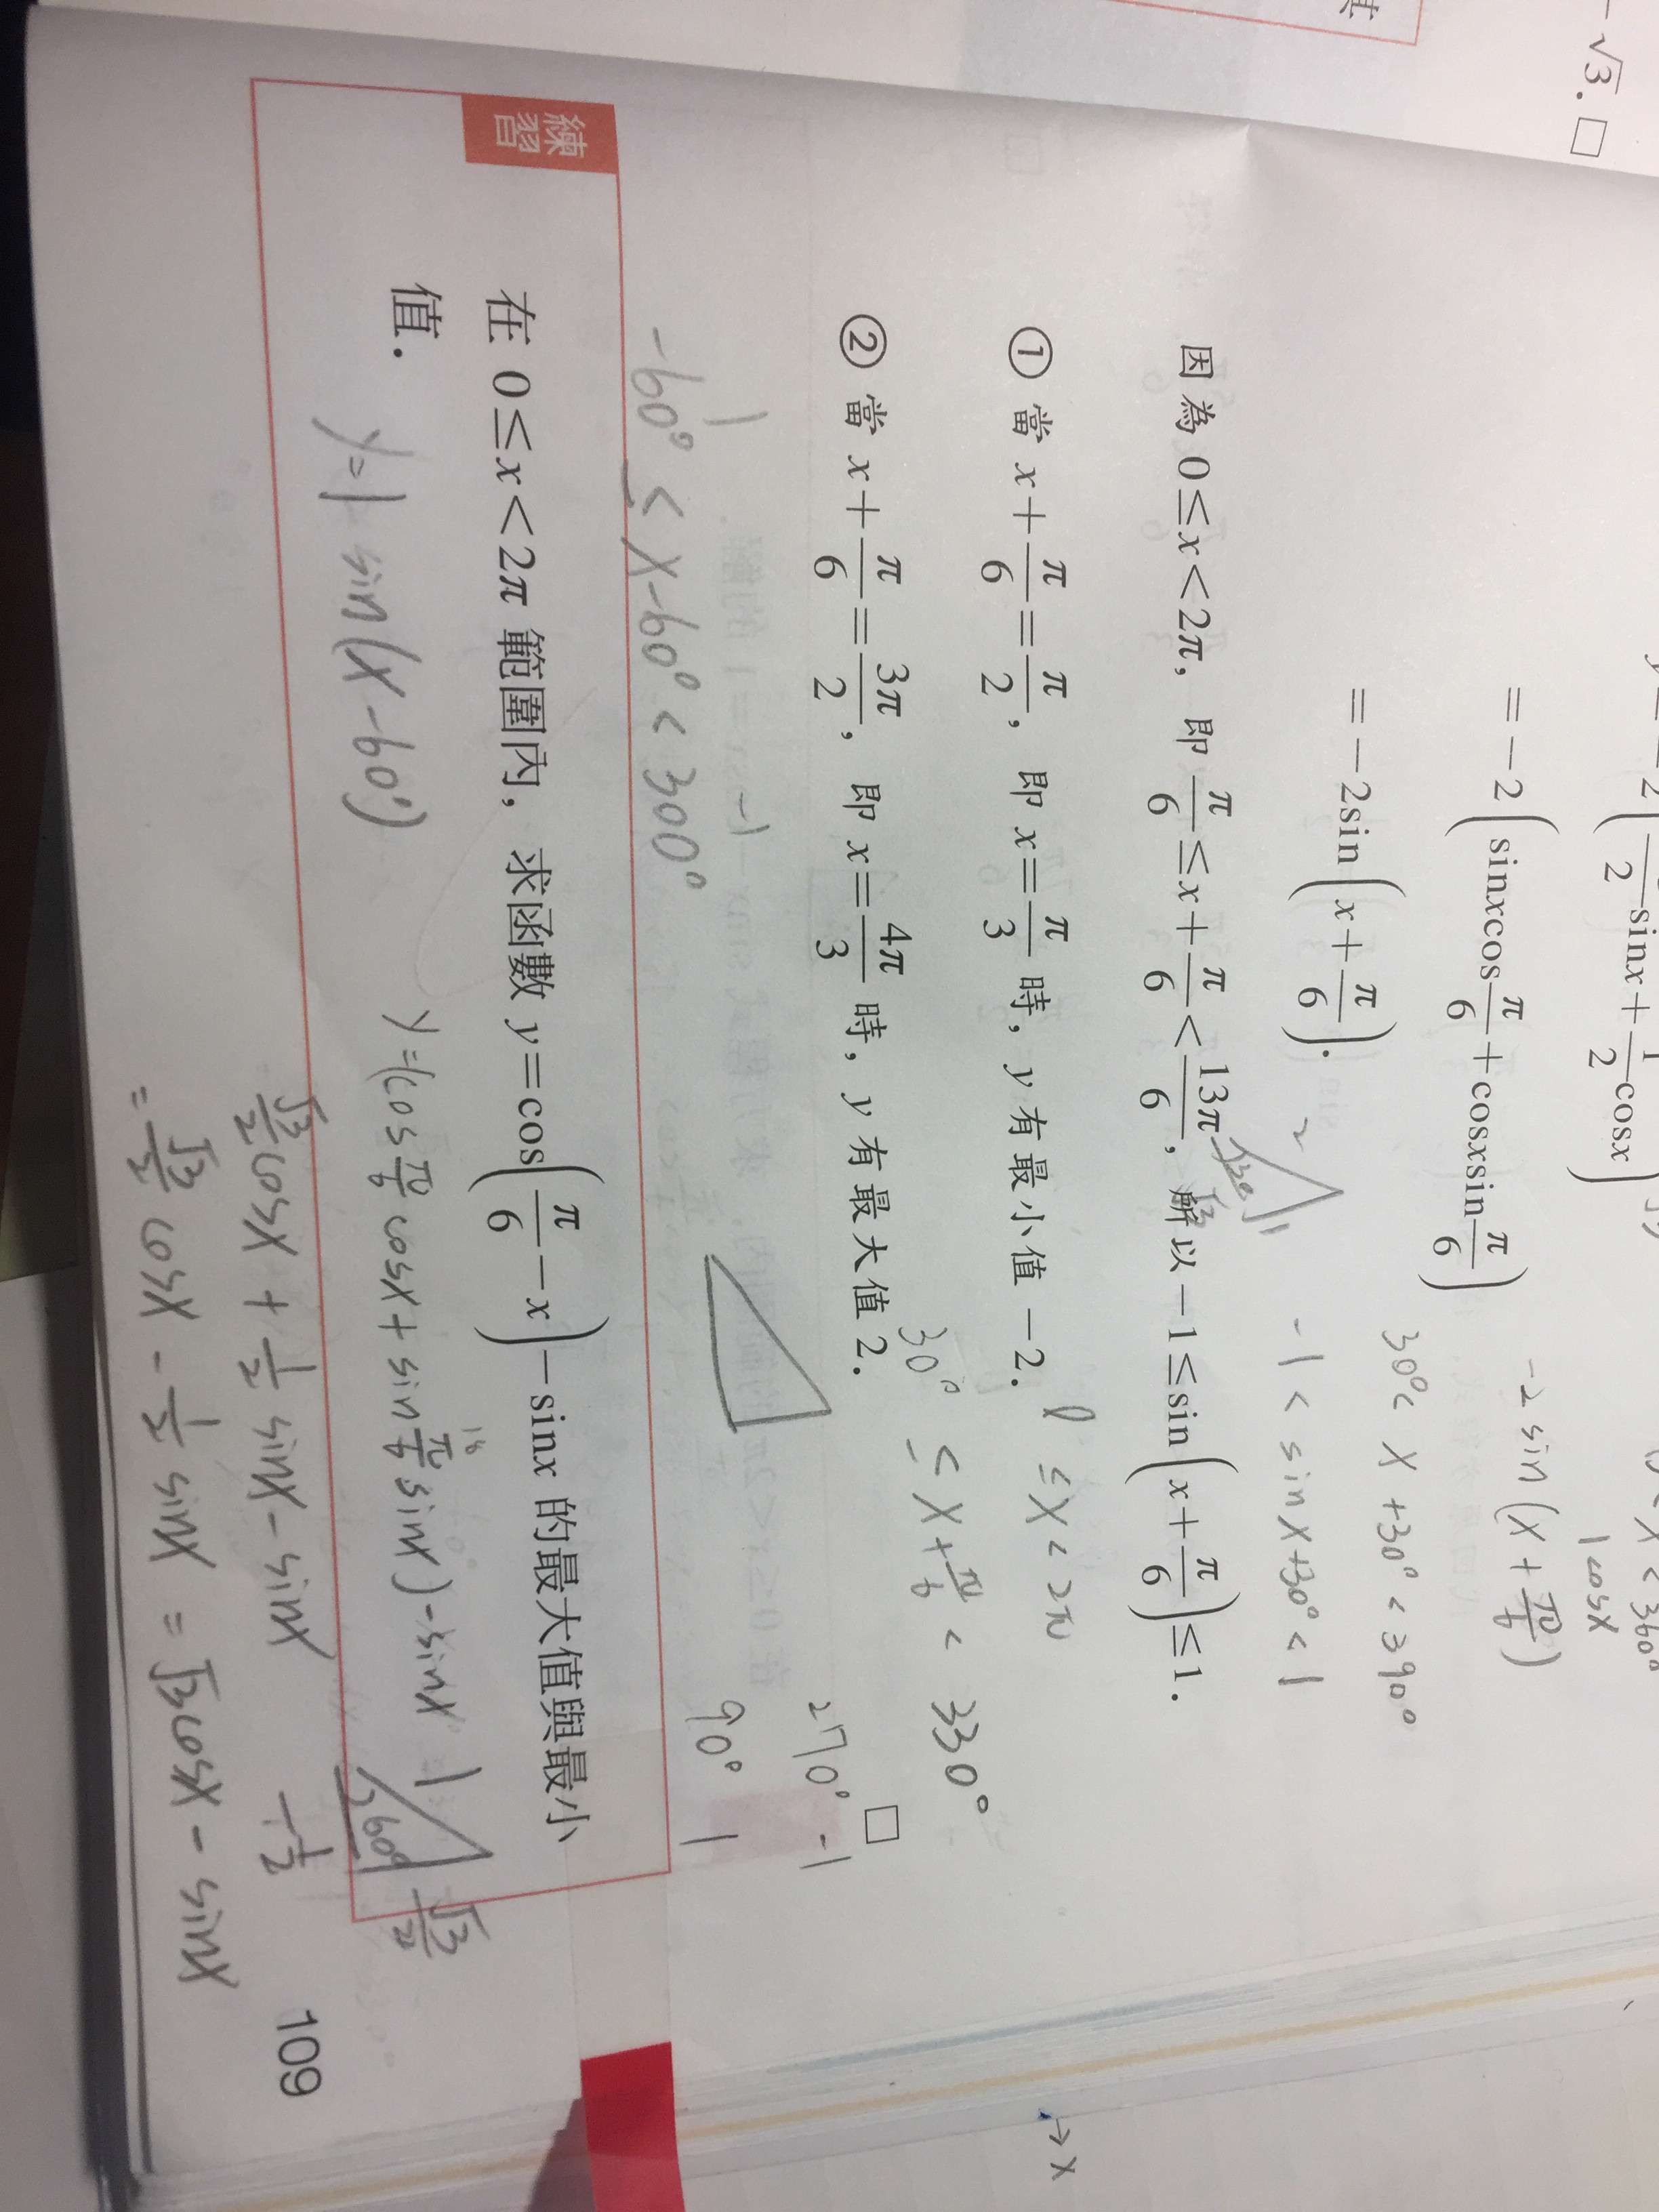 −√3. □
=−2(sinxcos π/6+cosxsin π/6)
−2 sin(x+π/6)
=−2sin(x+π/6).
30°< x+30°<390°
−1< sinx+30°<1
因為 0≤x<2π, 即 π/6≤x+π/6<13π/6, 所以−1≤sin(x+π/6)≤1.
① 當 x+π/6=π/2, 即 x=π/3 時, y 有最小值−2.
0≤x<2π
② 當 x+π/6=3π/2, 即 x=4π/3 時, y 有最大值2.
30°≤x+π/6<330°
□
270° −1
90° 1
−60°≤x−60°<300°
練習
在 0≤x<2π 範圍內, 求函數 y=cos(π/6−x)−sinx 的最大值與最小
值.
y=1 sin(x−60°)
y=(cos π/6 cosx+sin π/6 sinx)−sinx
1 60° √3/2
√3/2 cosx+1/2 sinx−sinx
−1/2
=√3/2 cosx−1/2 sinx=√3cosx−sinx
109
→x